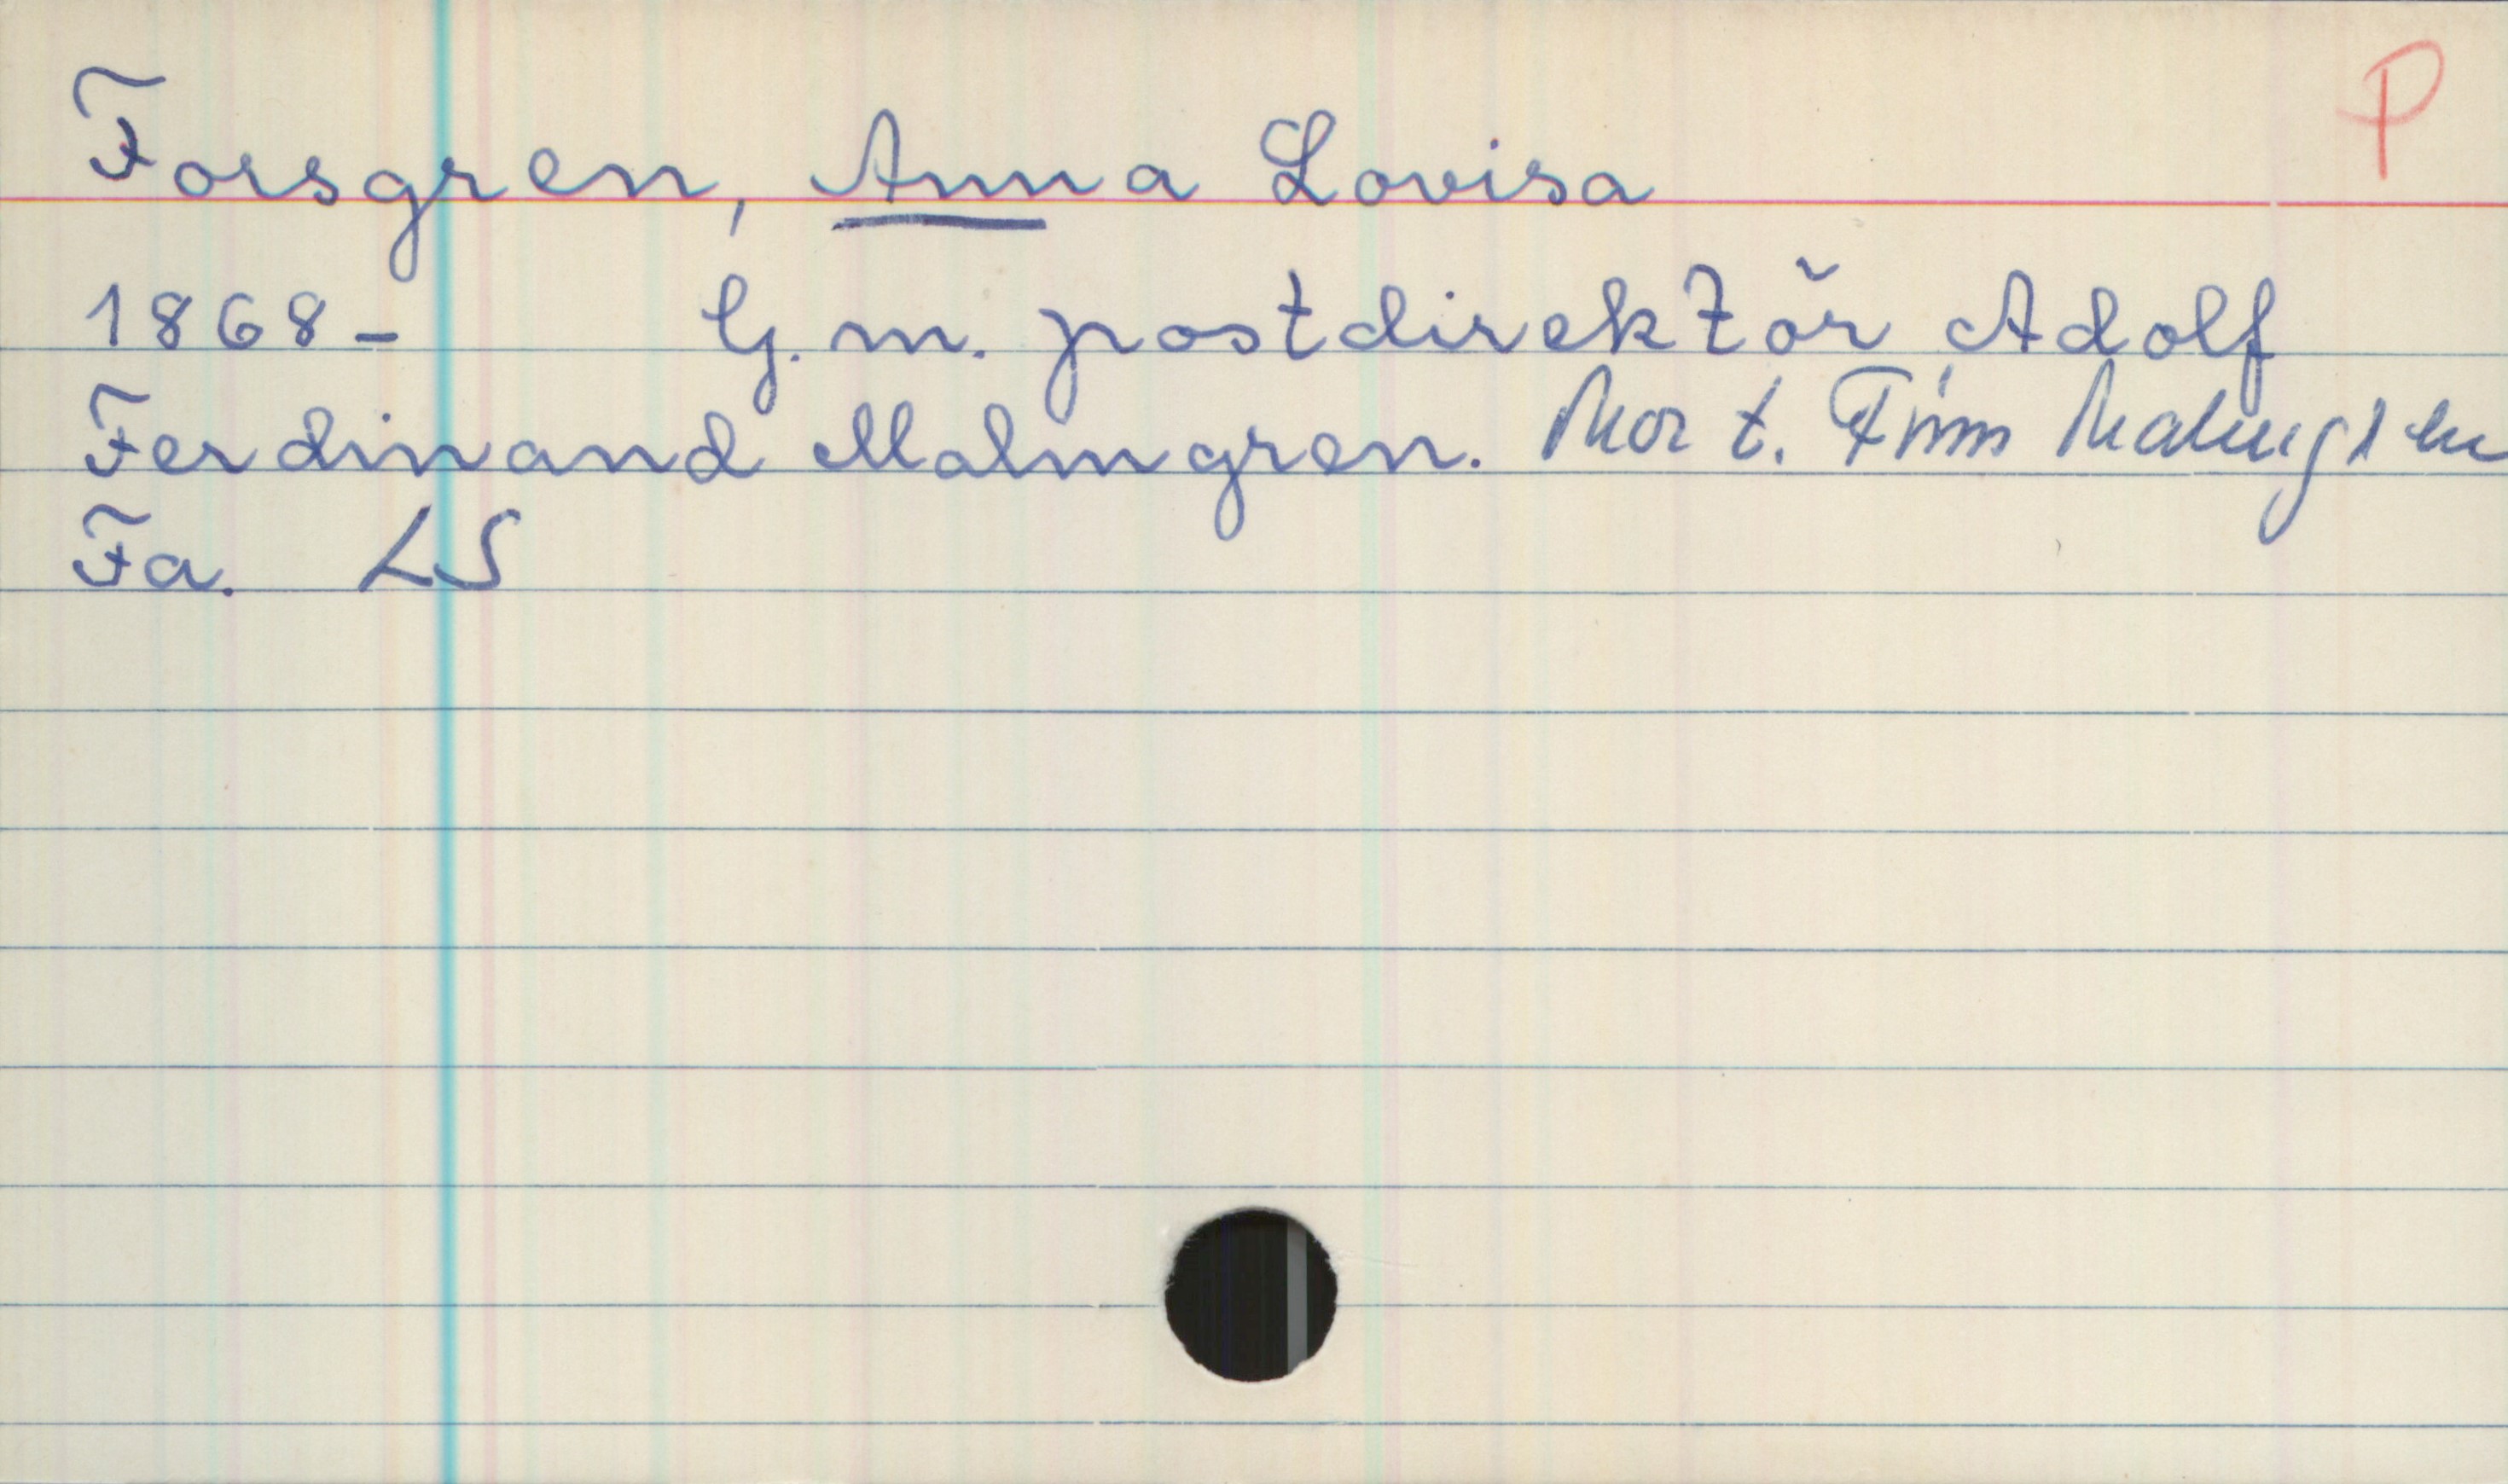 P
Forsgren, Anna Lovisa
1868- G.m. postdirektör Adolf
Ferdinand Malmgren. Mor t. Finn Malmgren
Fa. LS